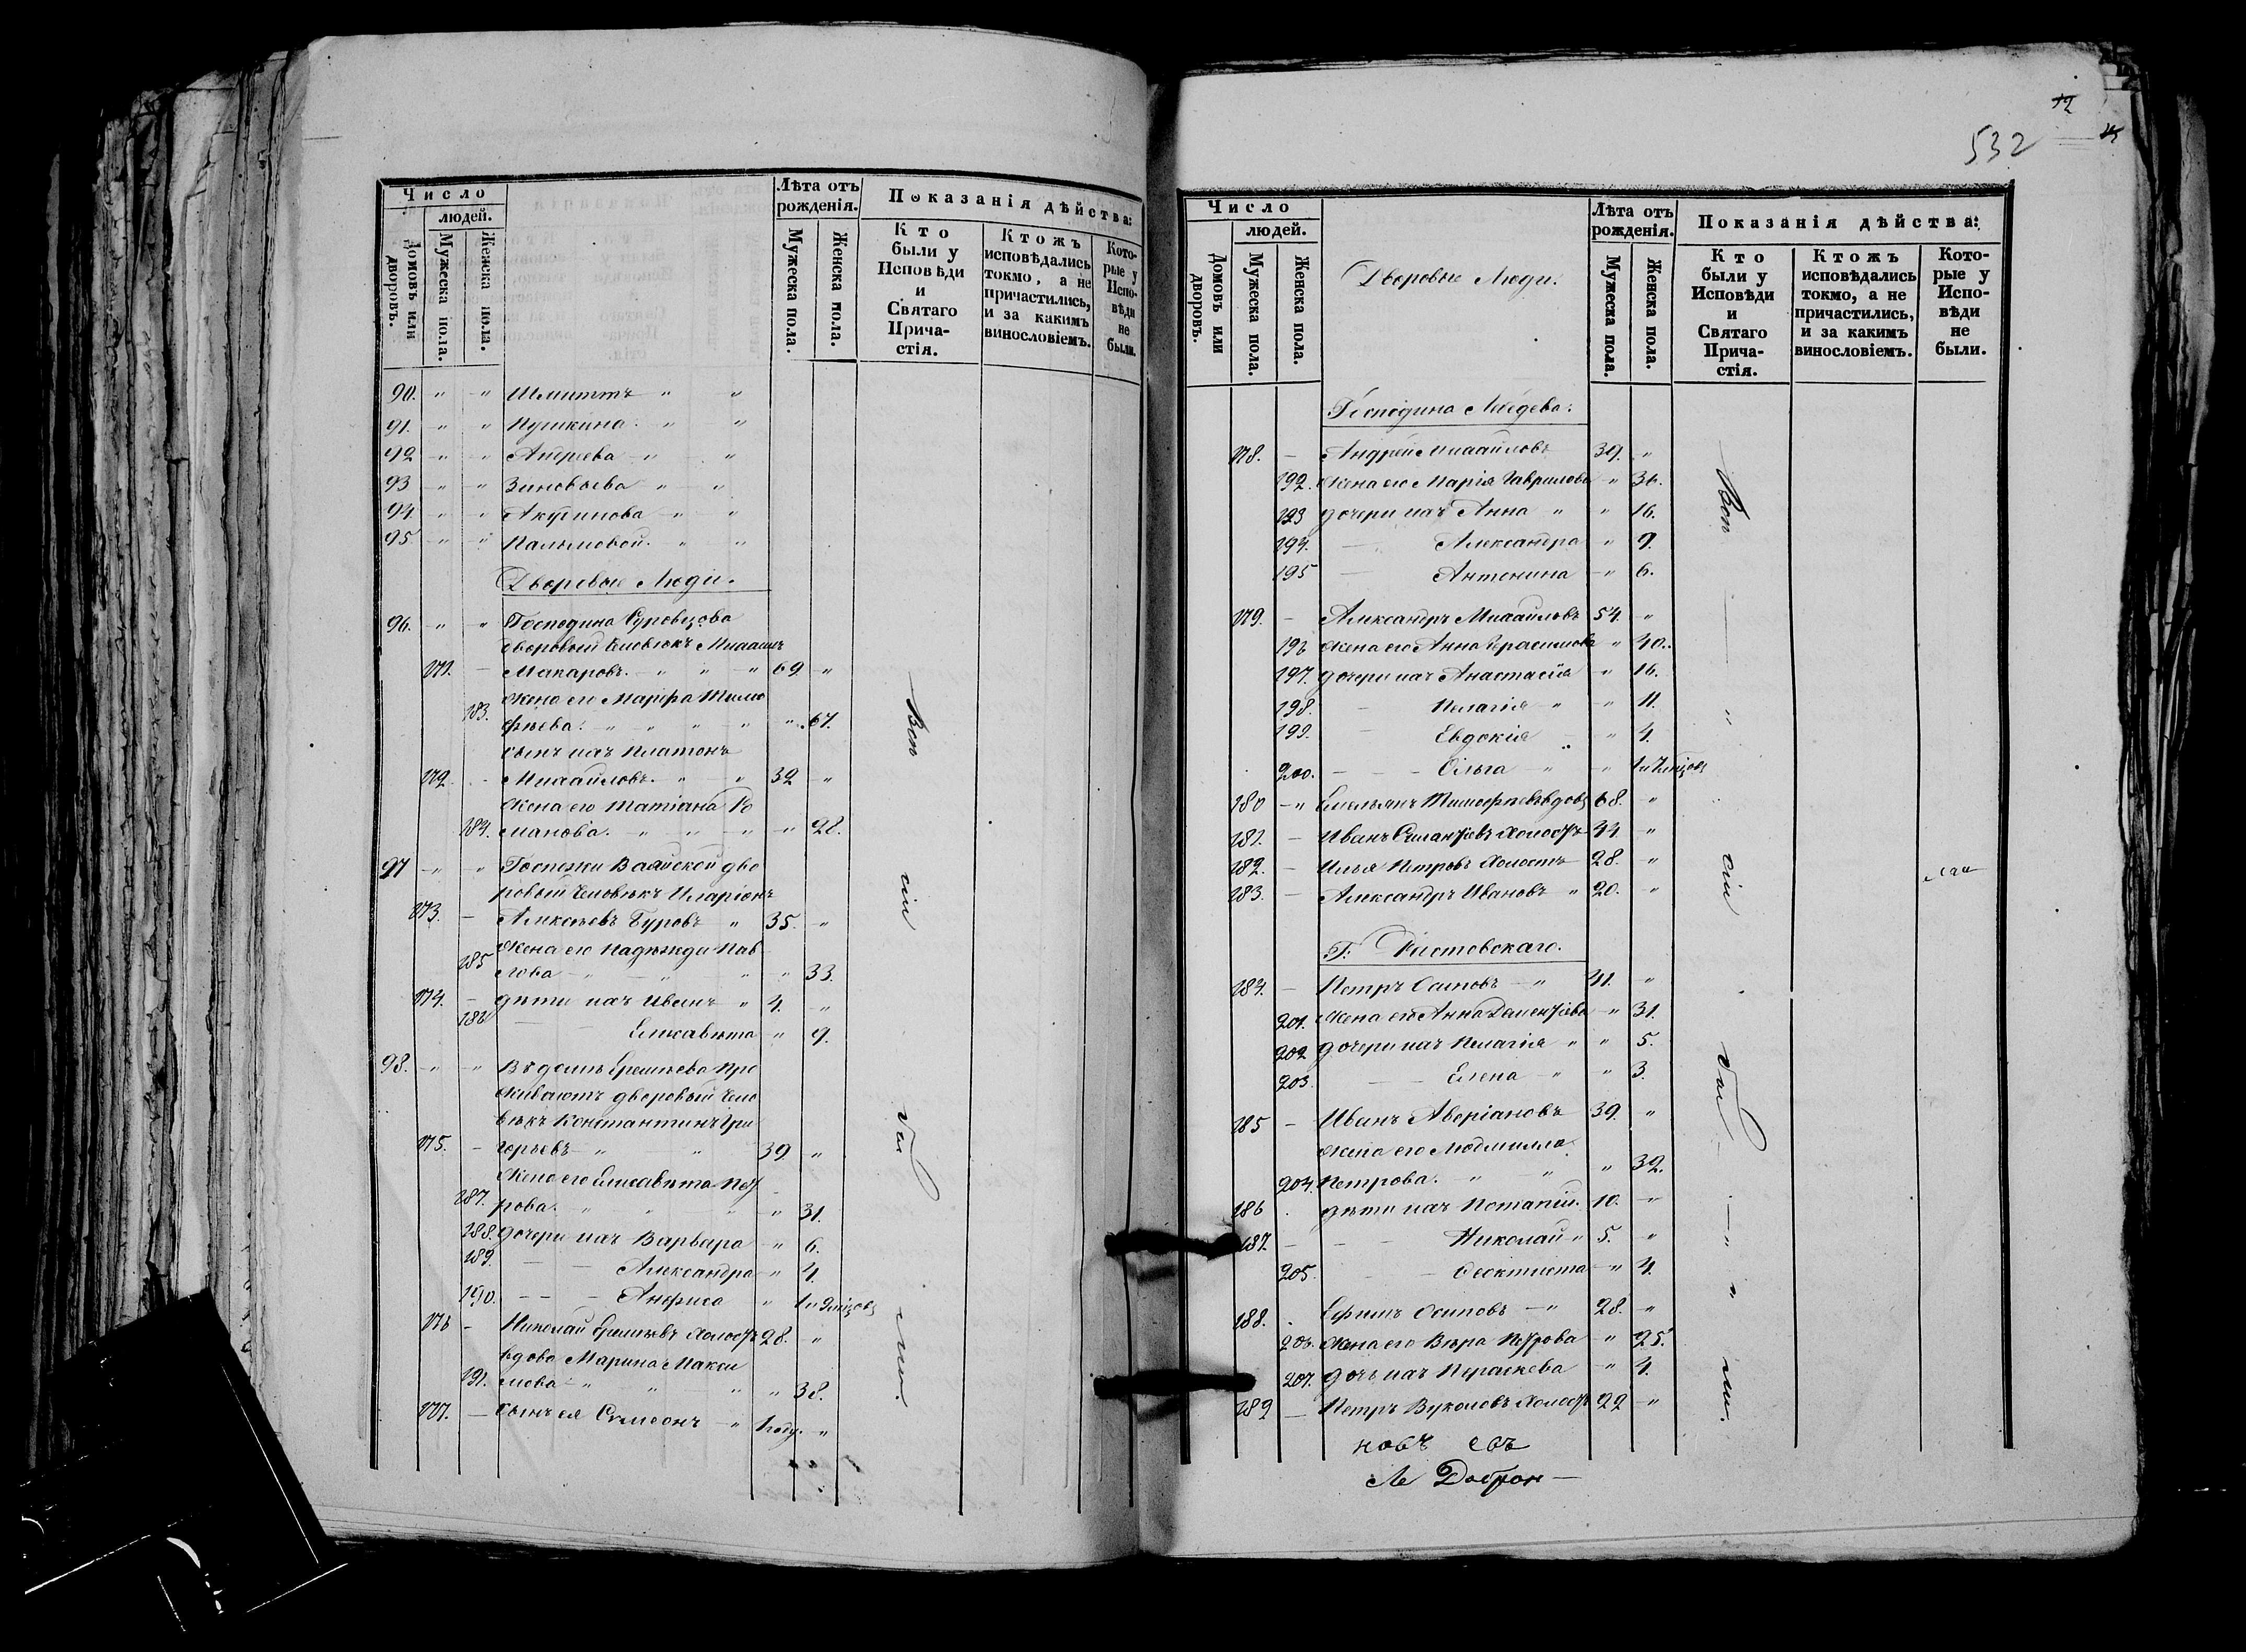 Число
людей.
Домовъ или дворовъ.
Мужеска пола.
Женска пола.
Лѣта отъ рожденія.
Мужеска пола.
Женска пола.
Показанія дѣйства:
Кто были у Исповѣди и Святаго Причастія.
Ктожъ исповѣдались токмо, а не причастились, и за какимъ винословіемъ.
Которые у Исповѣди не были.
90. " " Шмиттъ " "
91. " " Пушкина. " "
92 " " Андреева " "
93 " " Зиновьева " "
94 " " Акулинова " "
95. " " Пальмовой. " "
Дворовые Люди.
96. " " Господина Суровцова
дворовый человѣкъ Михаилъ
171. Макаровъ. " " " 69 "
жена его Марфа Тимо
183. фѣева. " " " " " 67.
сынъ ихъ Платонъ
172. Михайловъ. " " 32 "
жена его Татіана Ро
184. манова. " " " " 28.
97 " " Госпожи дво
ровый человѣкъ Иларіонъ
173. Алексѣевъ Буровъ " 35. "
жена его Надежда Пав
185 лова " " " " 33.
174. дѣти ихъ Иванъ " 4. "
186 Елисавета " 9.
98. " " Въ домѣ Еремѣева про
живаетъ дворовый чело
вѣкъ Константинъ Гри
175. горьевъ " " 39 "
жена его Елисавета Пет
187. рова. " " " " 31.
188. дочери ихъ Варвара " 6.
189. Александра " 4.
190. Анфиса " 1 и 9 мѣсяцовъ
176 Николай Еремѣевъ холостъ 28. "
вдова Марина Макси
191. мова " " " " 38.
177. сынъ ея Симеонъ " 1 году. "
Вси сіи были.
532
12
Число
людей.
Домовъ или дворовъ.
Мужеска пола.
Женска пола.
Дворовые Люди.
Лѣта отъ рожденія.
Мужеска пола.
Женска пола.
Показанія дѣйства:
Кто были у Исповѣди и Святаго Причастія.
Ктожъ исповѣдались токмо, а не причастились, и за какимъ винословіемъ.
Которые у Исповѣди не были.
Господина Лебедева:
178. Андрей Михайловъ 39. "
192. жена его Марія Гаврилова " 36.
193 дочери ихъ Анна " " 16.
194. Александра " 9.
195 Антонина " 6.
179. Александръ Михайловъ 54. "
196 жена его Анна Герасимова " 40.
197. дочери ихъ Анастасія " 16.
198. Пелагія " " 11.
199. Евдокія " 4.
200. Ольга " " 1 и 7 мѣсяцовъ
180 " Емельянъ Тимофѣевъ вдовъ 68. "
181. Иванъ холостъ 44 "
182. Илья Петровъ холостъ 28. "
183. Александръ Ивановъ " 20. "
Г: Ростовскаго.
184. Петръ Осиповъ " 41. "
201. жена его Анна " 31.
202 дочери ихъ Пелагія " " 5.
203. Елена " " 3.
185 Иванъ Аверіановъ 39. "
жена его Людмилла
204. Петрова. " " " 32.
186 дѣти ихъ Потапій. 10. "
187. Николай " 5. "
205. Феоктиста " 4.
188. Ефимъ Осиповъ " 28. "
206. жена его Вѣра Петрова " 25.
207. дочь ихъ Параскева " 4.
189 Петръ Вуколовъ холостъ 22 "
Вси сіи были.
новъ съ
Ле Доброн